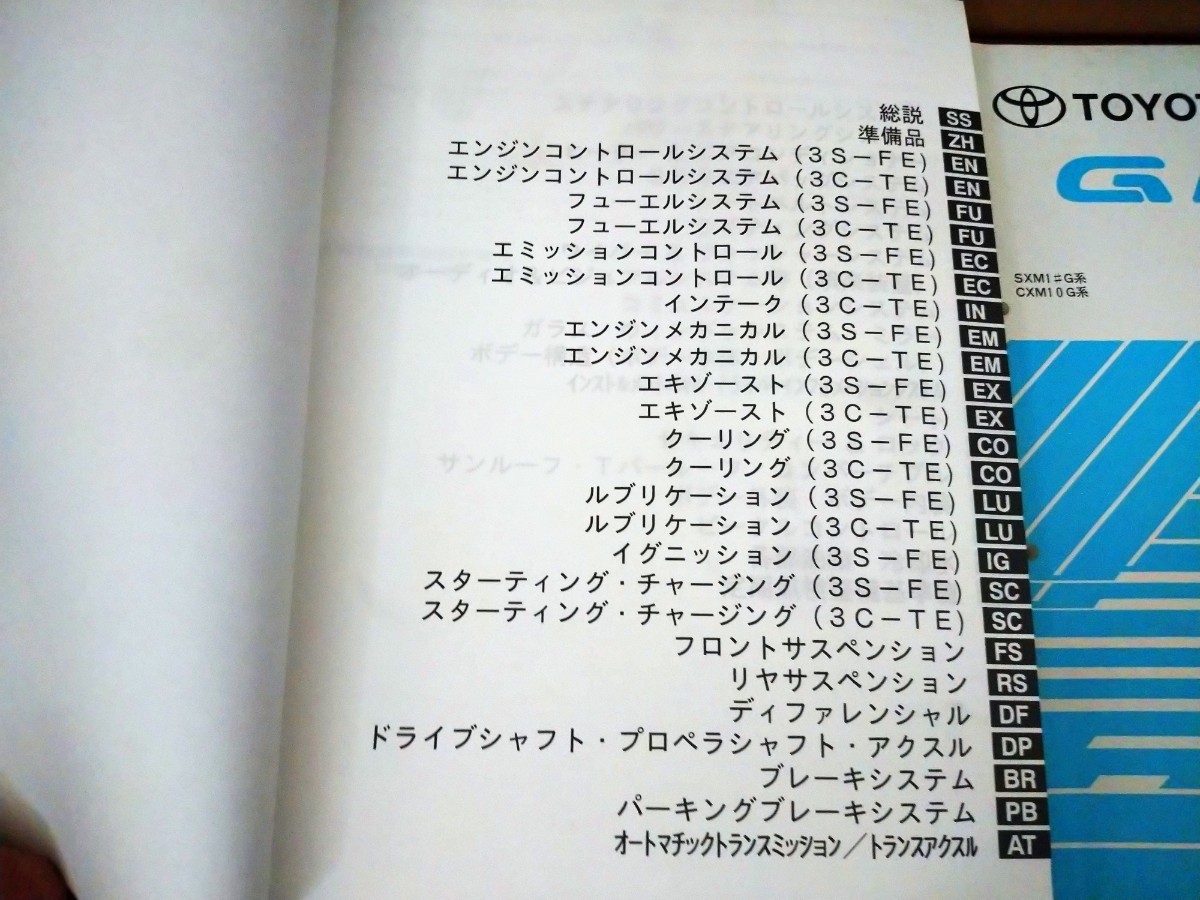 総説 SS
準備品 ZH
エンジンコントロールシステム（3S－FE） EN
エンジンコントロールシステム（3C－TE） EN
フューエルシステム（3S－FE） FU
フューエルシステム（3C－TE） FU
エミッションコントロール（3S－FE） EC
エミッションコントロール（3C－TE） EC
インテーク（3C－TE） IN
エンジンメカニカル（3S－FE） EM
エンジンメカニカル（3C－TE） EM
エキゾースト（3S－FE） EX
エキゾースト（3C－TE） EX
クーリング（3S－FE） CO
クーリング（3C－TE） CO
ルブリケーション（3S－FE） LU
ルブリケーション（3C－TE） LU
イグニッション（3S－FE） IG
スターティング・チャージング（3S－FE） SC
スターティング・チャージング（3C－TE） SC
フロントサスペンション FS
リヤサスペンション RS
ディファレンシャル DF
ドライブシャフト・プロペラシャフト・アクスル DP
ブレーキシステム BR
パーキングブレーキシステム PB
オートマチックトランスミッション／トランスアクスル AT
TOYOT
G
SXM1♯G系
CXM10G系